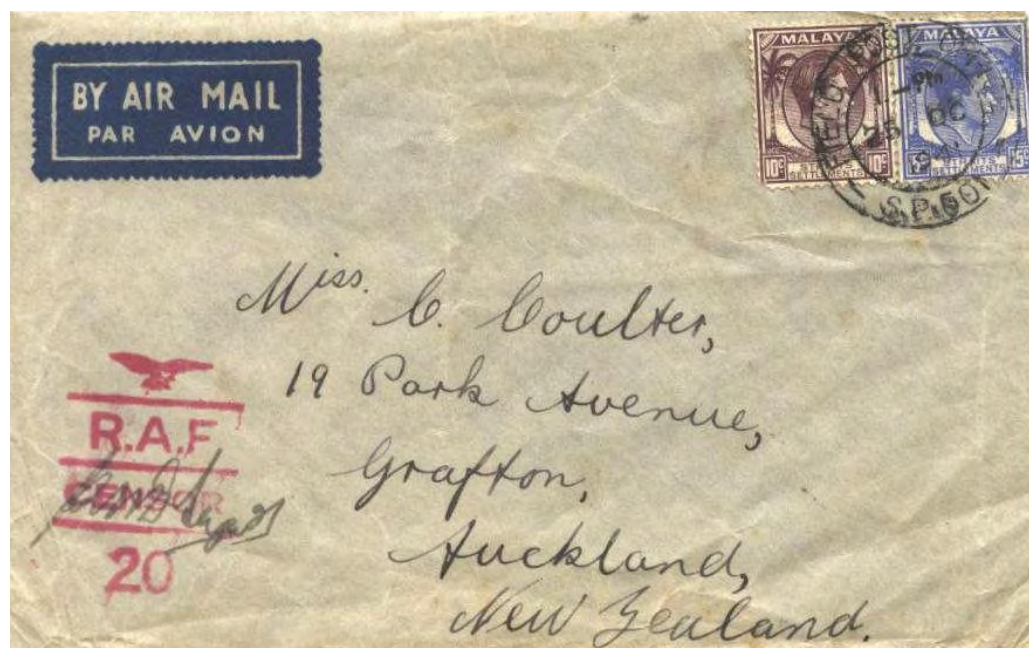 BY AIR MAIL
PAR AVION
MALAYA
10c 10c
STRAITS
SETTLEMENTS
MALAYA
15c
STRAITS
SETTLEMENTS
FIELD POST OFFICE
PM
25 OC
S.P.501
Miss. C. Coulter,
19 Park Avenue,
Grafton,
Auckland,
New Zealand.
R.A.F
CENSOR
20